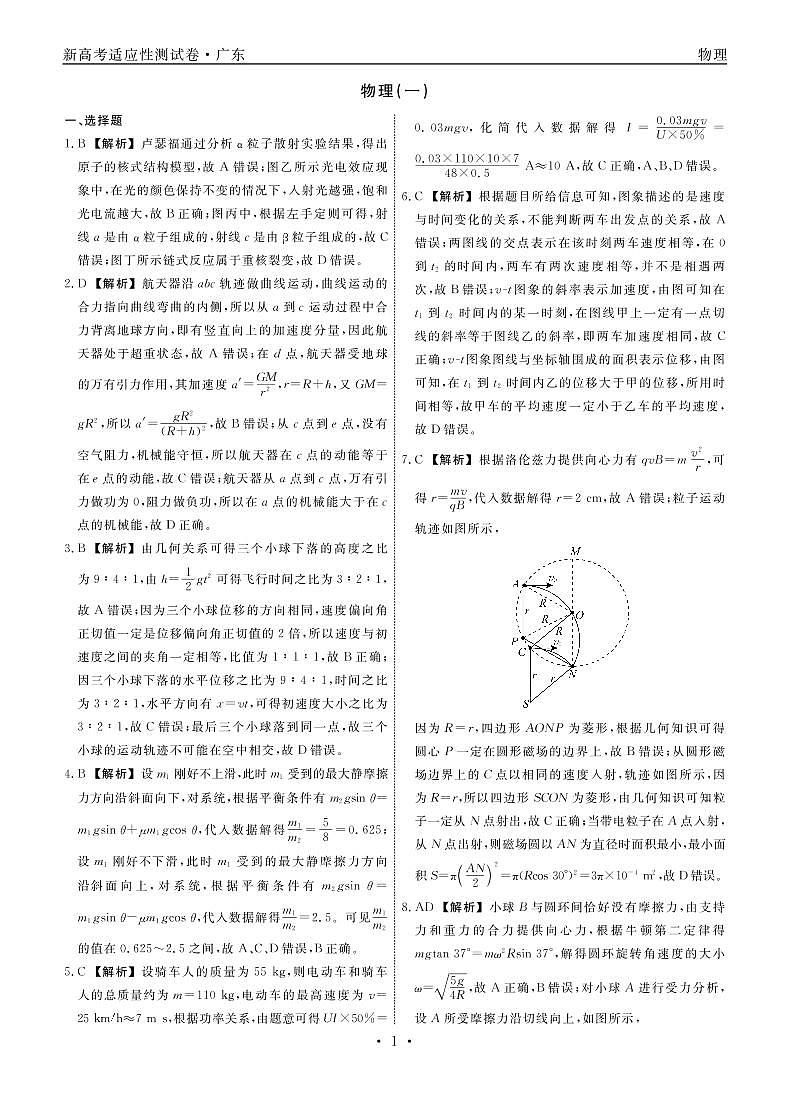 新高考适应性测试卷·广东
物理
物理(一)
一、选择题
1. B 【解析】卢瑟福通过分析α粒子散射实验结果,得出
原子的核式结构模型,故 A 错误;图乙所示光电效应现
象中,在光的颜色保持不变的情况下,入射光越强,饱和
光电流越大,故 B 正确;图丙中,根据左手定则可得,射
线 a 是由 α 粒子组成的,射线 c 是由 β 粒子组成的,故 C
错误;图丁所示链式反应属于重核裂变,故 D 错误。
2. D 【解析】航天器沿 abc 轨迹做曲线运动,曲线运动的
合力指向曲线弯曲的内侧,所以从 a 到 c 运动过程中合
力背离地球方向,即有竖直向上的加速度分量,因此航
天器处于超重状态,故 A 错误;在 d 点,航天器受地球
的万有引力作用,其加速度 a′=GM/r²,r=R+h,又 GM=
gR²,所以 a′=gR²/(R+h)²,故 B 错误;从 c 点到 e 点,没有
空气阻力,机械能守恒,所以航天器在 c 点的动能等于
在 e 点的动能,故 C 错误;航天器从 a 点到 c 点,万有引
力做功为 0,阻力做负功,所以在 a 点的机械能大于在 c
点的机械能,故 D 正确。
3. B 【解析】由几何关系可得三个小球下落的高度之比
为 9∶4∶1,由 h=1/2gt² 可得飞行时间之比为 3∶2∶1,
故 A 错误;因为三个小球位移的方向相同,速度偏向角
正切值一定是位移偏向角正切值的 2 倍,所以速度与初
速度之间的夹角一定相等,比值为 1∶1∶1,故 B 正确;
因三个小球下落的水平位移之比为 9∶4∶1,时间之比
为 3∶2∶1,水平方向有 x=vt,可得初速度大小之比为
3∶2∶1,故 C 错误;最后三个小球落到同一点,故三个
小球的运动轨迹不可能在空中相交,故 D 错误。
4. B 【解析】设 m₁ 刚好不上滑,此时 m₁ 受到的最大静摩擦
力方向沿斜面向下,对系统,根据平衡条件有 m₂gsin θ=
m₁gsin θ+μm₁gcos θ,代入数据解得m₁/m₂=5/8=0.625;
设 m₁ 刚好不下滑,此时 m₁ 受到的最大静摩擦力方向
沿斜面向上,对系统,根据平衡条件有 m₂gsin θ=
m₁gsin θ−μm₁gcos θ,代入数据解得m₁/m₂=2.5。可见m₁/m₂
的值在 0.625~2.5 之间,故 A、C、D 错误,B 正确。
5. C 【解析】设骑车人的质量为 55 kg,则电动车和骑车
人的总质量约为 m=110 kg,电动车的最高速度为 v=
25 km/h≈7 m s,根据功率关系,由题意可得 UI×50%=
0.03mgv,化简代入数据解得 I=0.03mgv/(U×50%)=
(0.03×110×10×7)/(48×0.5) A≈10 A,故 C 正确,A、B、D 错误。
6. C 【解析】根据题目所给信息可知,图象描述的是速度
与时间变化的关系,不能判断两车出发点的关系,故 A
错误;两图线的交点表示在该时刻两车速度相等,在 0
到 t₂ 的时间内,两车有两次速度相等,并不是相遇两
次,故 B 错误;v-t图象的斜率表示加速度,由图可知在
t₁ 到 t₂ 时间内的某一时刻,在图线甲上一定有一点切
线的斜率等于图线乙的斜率,即两车加速度相同,故 C
正确;v-t图象图线与坐标轴围成的面积表示位移,由图
可知,在 t₁ 到 t₂ 时间内乙的位移大于甲的位移,所用时
间相等,故甲车的平均速度一定小于乙车的平均速度,
故 D 错误。
7. C 【解析】根据洛伦兹力提供向心力有 qvB=m v²/r,可
得 r=mv/qB,代入数据解得 r=2 cm,故 A 错误;粒子运动
轨迹如图所示,
M
A
v₀
R
r
R
O
P
R
C
v
N
r
r
S
因为 R=r,四边形 AONP 为菱形,根据几何知识可得
圆心 P 一定在圆形磁场的边界上,故 B 错误;从圆形磁
场边界上的 C 点以相同的速度入射,轨迹如图所示,因
为 R=r,所以四边形 SCON 为菱形,由几何知识可知粒
子一定从 N 点射出,故 C 正确;当带电粒子在 A 点入射,
从 N 点出射,则磁场圆以 AN 为直径时面积最小,最小面
积 S=π(AN/2)²=π(Rcos 30°)²=3π×10⁻⁴ m²,故 D 错误。
8. AD 【解析】小球 B 与圆环间恰好没有摩擦力,由支持
力和重力的合力提供向心力,根据牛顿第二定律得
mgtan 37°=mω²Rsin 37°,解得圆环旋转角速度的大小
ω=√(5g/4R),故 A 正确,B 错误;对小球 A 进行受力分析,
设 A 所受摩擦力沿切线向上,如图所示,
• 1 •